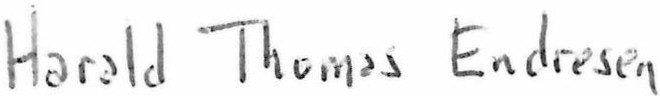 Harald Thomas Endresen